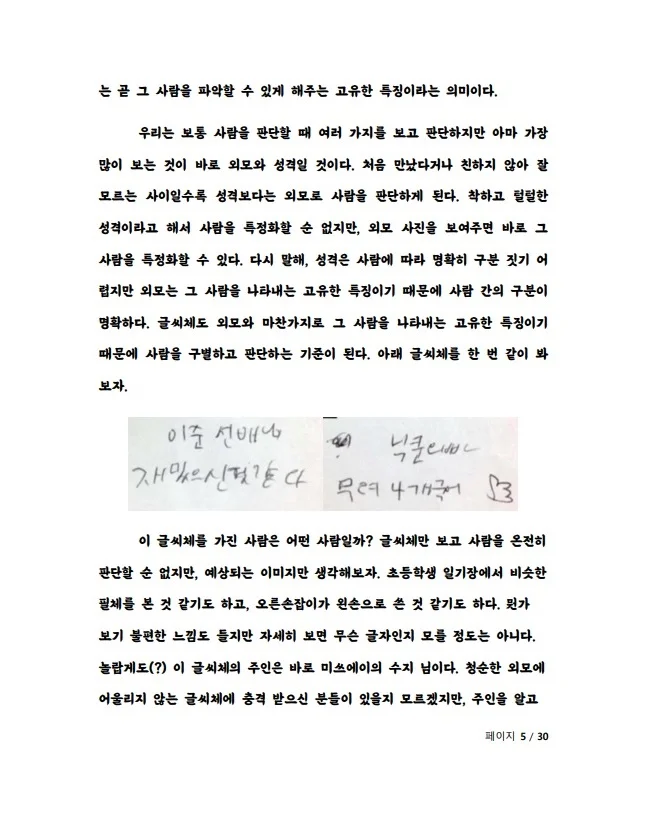 는 곧 그 사람을 파악할 수 있게 해주는 고유한 특징이라는 의미이다.
우리는 보통 사람을 판단할 때 여러 가지를 보고 판단하지만 아마 가장
많이 보는 것이 바로 외모와 성격일 것이다. 처음 만났다거나 친하지 않아 잘
모르는 사이일수록 성격보다는 외모로 사람을 판단하게 된다. 착하고 털털한
성격이라고 해서 사람을 특정화할 순 없지만, 외모 사진을 보여주면 바로 그
사람을 특정화할 수 있다. 다시 말해, 성격은 사람에 따라 명확히 구분 짓기 어
렵지만 외모는 그 사람을 나타내는 고유한 특징이기 때문에 사람 간의 구분이
명확하다. 글씨체도 외모와 마찬가지로 그 사람을 나타내는 고유한 특징이기
때문에 사람을 구별하고 판단하는 기준이 된다. 아래 글씨체를 한 번 같이 봐
보자.
이준 선배님
재밌으신것같다
닉쿤오빠는
무려 4개국어
이 글씨체를 가진 사람은 어떤 사람일까? 글씨체만 보고 사람을 온전히
판단할 순 없지만, 예상되는 이미지만 생각해보자. 초등학생 일기장에서 비슷한
필체를 본 것 같기도 하고, 오른손잡이가 왼손으로 쓴 것 같기도 하다. 뭔가
보기 불편한 느낌도 들지만 자세히 보면 무슨 글자인지 모를 정도는 아니다.
놀랍게도(?) 이 글씨체의 주인은 바로 미쓰에이의 수지 님이다. 청순한 외모에
어울리지 않는 글씨체에 충격 받으신 분들이 있을지 모르겠지만, 주인을 알고
페이지 5 / 30